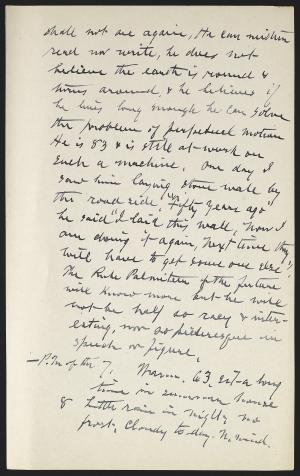 shall not see again, He can neither
read nor write, he does not
believe the earth is round &
turns around, & he believes if
he lives long enough he can solve
the problem of perpetual motion
He is 83 & is still at work on
such a machine. One day I
saw him laying stone wall by
the road side, "Fifty years ago"
he said "I laid this wall, now I
am doing it again, next time they
will have to get some one else",
The Rube of the future
will know more but he will
not be half so racy & inter-
esting, nor so picturesque in
speech or figure,
—P.M. of the 7. Warm. 63, sit a long
time in summer house
& little rain in night, no
frost, Cloudy to-day. N. wind.